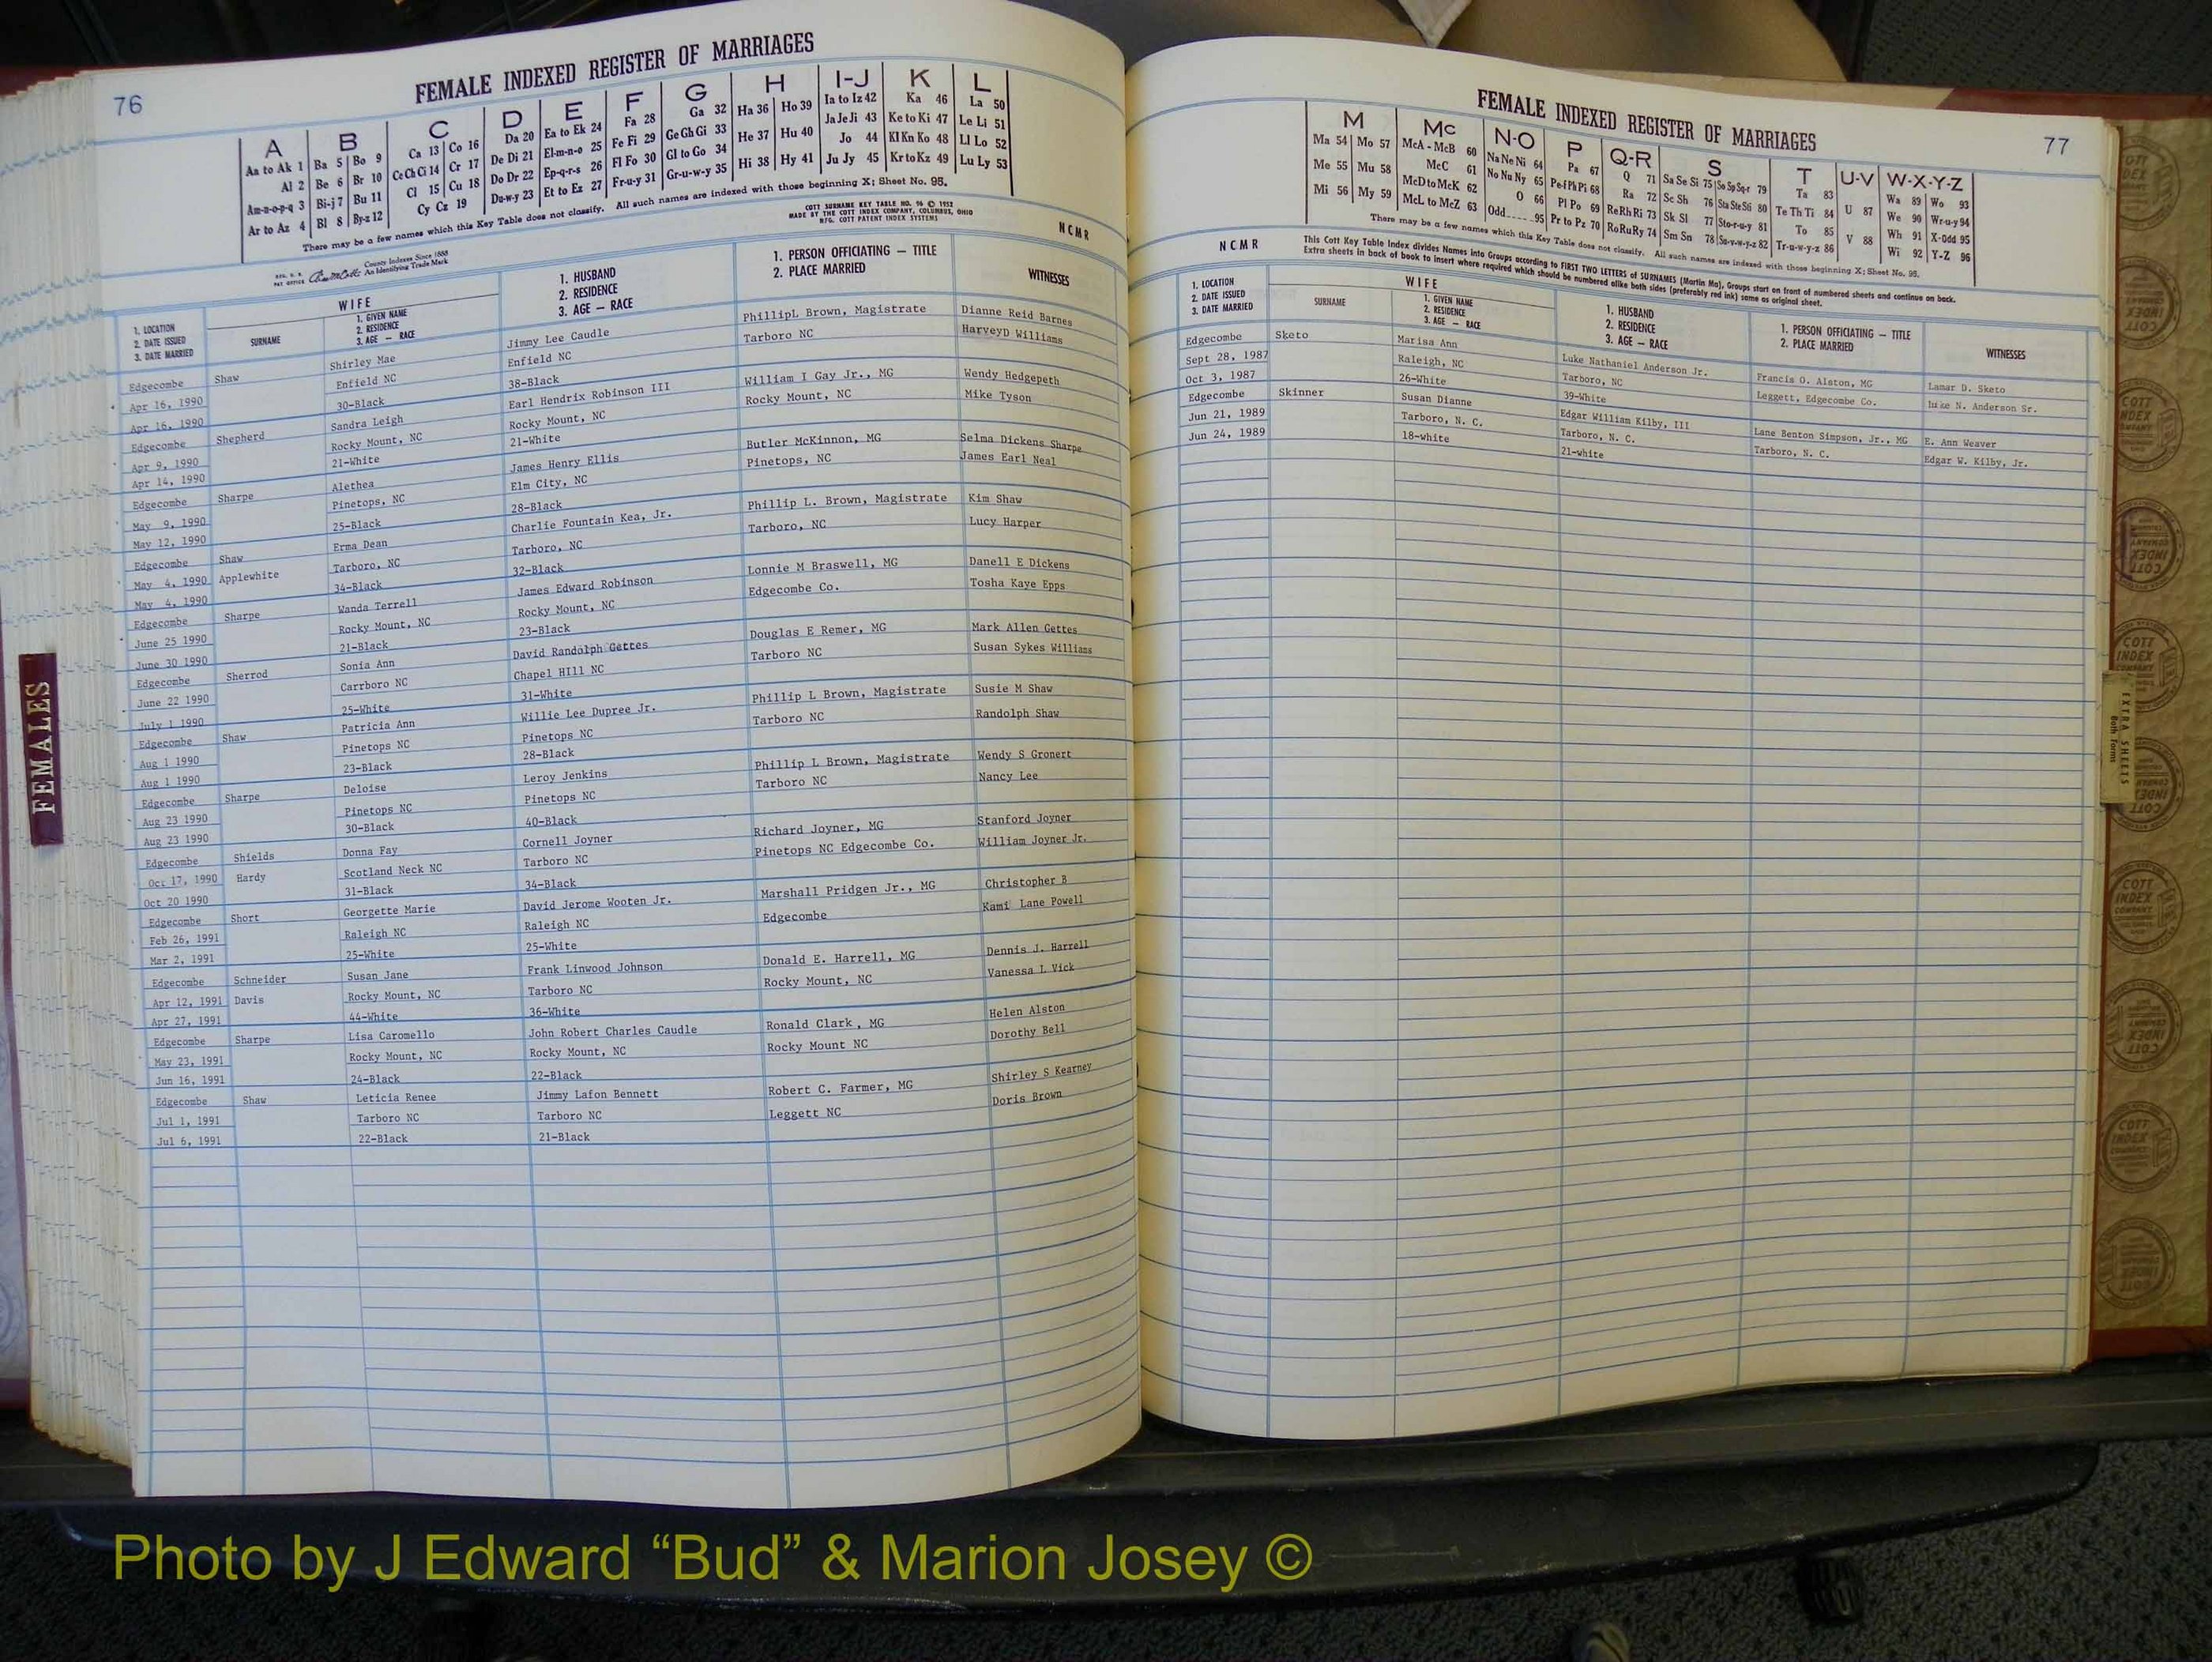 76
FEMALE INDEXED REGISTER OF MARRIAGES
A B C D E F G H I-J K L
Aa to Ak 1 Ba 5 Bo 9 Ca 13 Co 16 Da 20 Ea to Ek 24 Fa 28 Ga 32 Ha 36 Ho 39 Ia to Iz 42 Ka 46 La 50
Al 2 Be 6 Br 10 Ce Ch Ci 14 Cr 17 De Di 21 El-m-n-o 25 Fe Fi 29 Ge Gh Gi 33 He 37 Hu 40 Ja Je Ji 43 Ke to Ki 47 Le Li 51
Am-n-o-p-q 3 Bi-j 7 Bu 11 Cl 15 Cu 18 Do Dr 22 Ep-q-r-s 26 Fl Fo 30 Gl to Go 34 Hi 38 Hy 41 Jo 44 Kl Kn Ko 48 Ll Lo 52
Ar to Az 4 Bl 8 By-z 12 Cy Cz 19 Du-w-y 23 Et to Ez 27 Fr-u-y 31 Gr-u-w-y 35 Ju Jy 45 Kr to Kz 49 Lu Ly 53
There may be a few names which this Key Table does not classify. All such names are indexed with those beginning X; Sheet No. 95.
COTT SURNAME KEY TABLE NO. 96 © 1952
MADE BY THE COTT INDEX COMPANY, COLUMBUS, OHIO
MFG. COTT PATENT INDEX SYSTEMS
County Indexes Since 1888
An Identifying Trade Mark
NCMR
1. LOCATION
2. DATE ISSUED
3. DATE MARRIED
WIFE
SURNAME
1. GIVEN NAME
2. RESIDENCE
3. AGE — RACE
1. HUSBAND
2. RESIDENCE
3. AGE — RACE
1. PERSON OFFICIATING — TITLE
2. PLACE MARRIED
WITNESSES
Edgecombe Shaw Shirley Mae Jimmy Lee Caudle PhillipL Brown, Magistrate Dianne Reid Barnes
Apr 16, 1990 Enfield NC Enfield NC Tarboro NC HarveyD Williams
Apr 16, 1990 30-Black 38-Black
Edgecombe Shepherd Sandra Leigh Earl Hendrix Robinson III William I Gay Jr., MG Wendy Hedgepeth
Apr 9, 1990 Rocky Mount, NC Rocky Mount, NC Rocky Mount, NC Mike Tyson
Apr 14, 1990 21-White 21-White
Edgecombe Sharpe Alethea James Henry Ellis Butler McKinnon, MG Selma Dickens Sharpe
May 9, 1990 Pinetops, NC Elm City, NC Pinetops, NC James Earl Neal
May 12, 1990 25-Black 28-Black
Edgecombe Shaw Erma Dean Charlie Fountain Kea, Jr. Phillip L. Brown, Magistrate Kim Shaw
May 4, 1990 Applewhite Tarboro, NC Tarboro, NC Tarboro, NC Lucy Harper
May 4, 1990 34-Black 32-Black
Edgecombe Sharpe Wanda Terrell James Edward Robinson Lonnie M Braswell, MG Danell E Dickens
June 25 1990 Rocky Mount, NC Rocky Mount, NC Edgecombe Co. Tosha Kaye Epps
June 30 1990 21-Black 23-Black
Edgecombe Sherrod Sonia Ann David Randolph Gettes Douglas E Remer, MG Mark Allen Gettes
June 22 1990 Carrboro NC Chapel HIll NC Tarboro NC Susan Sykes Williams
July 1 1990 25-White 31-White
Edgecombe Shaw Patricia Ann Willie Lee Dupree Jr. Phillip L Brown, Magistrate Susie M Shaw
Aug 1 1990 Pinetops NC Pinetops NC Tarboro NC Randolph Shaw
Aug 1 1990 23-Black 28-Black
Edgecombe Sharpe Deloise Leroy Jenkins Phillip L Brown, Magistrate Wendy S Gronert
Aug 23 1990 Pinetops NC Pinetops NC Tarboro NC Nancy Lee
Aug 23 1990 30-Black 40-Black
Edgecombe Shields Donna Fay Cornell Joyner Richard Joyner, MG Stanford Joyner
Oct 17, 1990 Hardy Scotland Neck NC Tarboro NC Pinetops NC Edgecombe Co. William Joyner Jr.
Oct 20 1990 31-Black 34-Black
Edgecombe Short Georgette Marie David Jerome Wooten Jr. Marshall Pridgen Jr., MG Christopher B
Feb 26, 1991 Raleigh NC Raleigh NC Edgecombe Kami Lane Powell
Mar 2, 1991 25-White 25-White
Edgecombe Schneider Susan Jane Frank Linwood Johnson Donald E. Harrell, MG Dennis J. Harrell
Apr 12, 1991 Davis Rocky Mount, NC Tarboro NC Rocky Mount, NC Vanessa L Vick
Apr 27, 1991 44-White 36-White
Edgecombe Sharpe Lisa Caromello John Robert Charles Caudle Ronald Clark, MG Helen Alston
May 23, 1991 Rocky Mount, NC Rocky Mount, NC Rocky Mount NC Dorothy Bell
Jun 16, 1991 24-Black 22-Black
Edgecombe Shaw Leticia Renee Jimmy Lafon Bennett Robert C. Farmer, MG Shirley S Kearney
Jul 1, 1991 Tarboro NC Tarboro NC Leggett NC Doris Brown
Jul 6, 1991 22-Black 21-Black
FEMALES
77
FEMALE INDEXED REGISTER OF MARRIAGES
M Mc N-O P Q-R S T U-V W-X-Y-Z
Ma 54 Mo 57 McA - McB 60 Na Ne Ni 64 Pa 67 Q 71 Sa Se Si 75 So Sp Sq-r 79 Ta 83 U 87 Wa 89 Wo 93
Me 55 Mu 58 McC 61 No Nu Ny 65 Pe-f Ph Pi 68 Ra 72 Sc Sh 76 Sta Ste Sti 80 Te Th Ti 84 V 88 We 90 Wr-u-y 94
Mi 56 My 59 McD to McK 62 O 66 Pl Po 69 Re Rh Ri 73 Sk Sl 77 Sto-r-u-y 81 To 85 Wh 91 X-Odd 95
McL to McZ 63 Odd 95 Pr to Pz 70 Ro Ru Ry 74 Sm Sn 78 Su-v-w-y-z 82 Tr-u-w-y-z 86 Wi 92 Y-Z 96
There may be a few names which this Key Table does not classify. All such names are indexed with those beginning X; Sheet No. 95.
NCMR
This Cott Key Table Index divides Names into Groups according to FIRST TWO LETTERS of SURNAMES (Martin Ma), Groups start on front of numbered sheets and continue on back.
Extra sheets in back of book to insert where required which should be numbered alike both sides (preferably red ink) same as original sheet.
1. LOCATION
2. DATE ISSUED
3. DATE MARRIED
WIFE
SURNAME
1. GIVEN NAME
2. RESIDENCE
3. AGE — RACE
1. HUSBAND
2. RESIDENCE
3. AGE — RACE
1. PERSON OFFICIATING — TITLE
2. PLACE MARRIED
WITNESSES
Edgecombe Sketo Marisa Ann Luke Nathaniel Anderson Jr. Francis O. Alston, MG Lamar D. Sketo
Sept 28, 1987 Raleigh, NC Tarboro, NC Leggett, Edgecombe Co. Luke N. Anderson Sr.
Oct 3, 1987 26-White 39-White
Edgecombe Skinner Susan Dianne Edgar William Kilby, III Lane Benton Simpson, Jr., MG E. Ann Weaver
Jun 21, 1989 Tarboro, N. C. Tarboro, N. C. Tarboro, N. C. Edgar W. Kilby, Jr.
Jun 24, 1989 18-white 21-white
EXTRA SHEETS
Both Forms
COTT INDEX COMPANY
Photo by J Edward “Bud” & Marion Josey ©